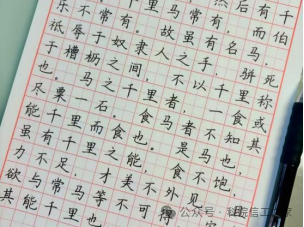 然后有千
里马常有,而伯
乐不常有。故虽有名马,
祗辱于奴隶人之手,骈死
于槽枥之间,不以千里称
也。马之千里者,一食或
尽粟一石。食马者不知其
能千里而食也。是马也,
虽有千里之能,食不饱,
力不足,才美不外见,且
欲与常马等不可得
其能千里也